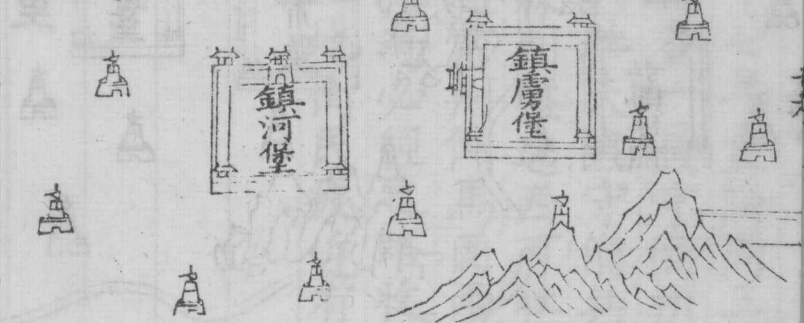 鎮虜堡
鎮河堡